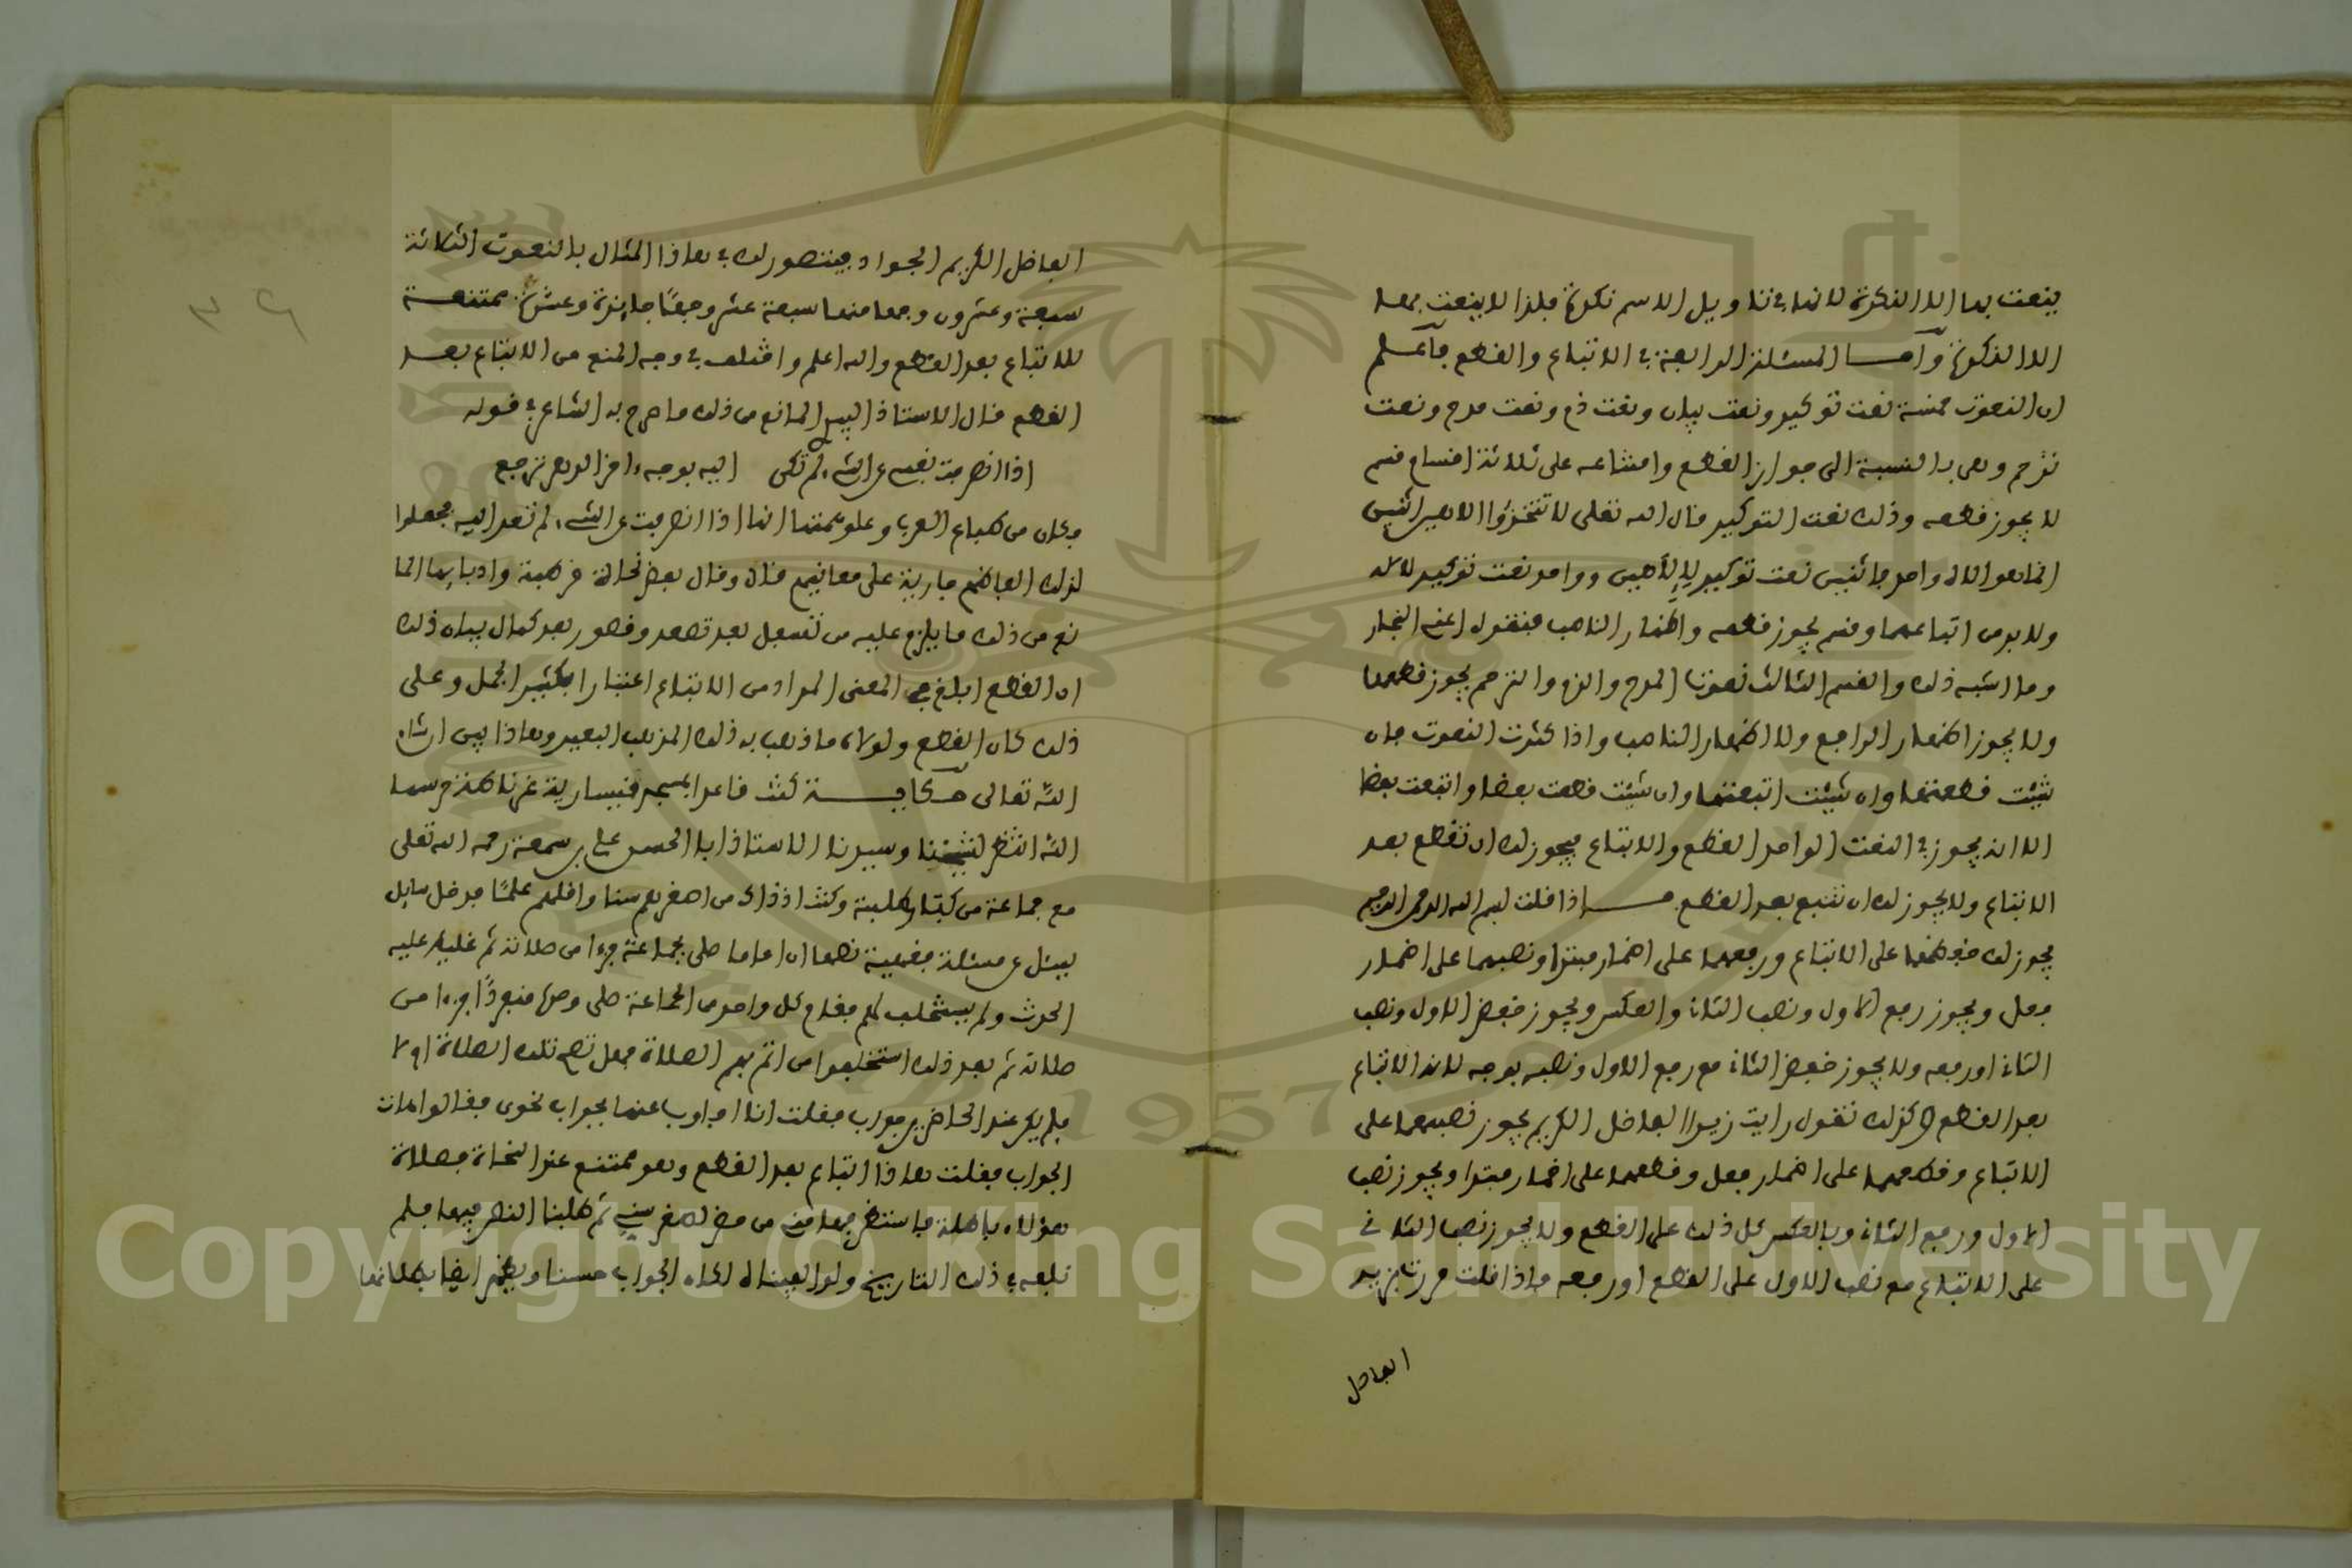 ينعت بها الا النكرة لانها في تاويل الاسم نكرة فلذا لا ينعت بها
الا النكرة وأما المسئلة الرابعة في الاتباع والقطع فاعلم
ان النعوت خمسة نعت توكيد ونعت بيان ونعت ذم ونعت مدح ونعت
ترحم وهي بالنسبة الى جواز القطع وامتناعه على ثلاثة اقسام قسم
لا يجوز قطعه وذلك نعت التوكيد قال الله تعلى لا تتخذوا الاهين اثنين
انما هو الاه واحد فاثنين نعت توكيد لإلاهين وواحد نعت توكيد لالاه
ولا بد من اتباعهما وقسم يجوز قطعه واظهار الناصب فتقول اعني النجار
وما اشبه ذلك والقسم الثالث نعوت المدح والذم والترحم يجوز قطعها
ولا يجوز اظهار الرافع ولا اظهار الناصب واذا كثرت النعوت فان
شيئت قطعتها وان شيئت اتبعتها وان شيئت قطعت بعضا واتبعت بعضا
الا انه يجوز في النعت الواحد القطع والاتباع فيجوز لك ان تقطع بعد
الاتباع ولا يجوز لك ان تتبع بعد القطع اذا قلت بسم الله الرحمن الرحيم
يجوز لك خفضهما على الاتباع ورفعهما على اضمار مبتدإ ونصبهما على اضمار
فعل ويجوز رفع الاول ونصب الثاني والعكس ويجوز خفض الاول ونصب
الثاني اورفعه ولا يجوز خفض الثاني مع رفع الاول ونصبه بوجه لانه الاتباع
بعد القطع وكذلك تقول رايت زيدا الفاضل الكريم يجوز نصبهما على
الاتباع وقطعهما على اضمار فعل وقطعهما على اضمار مبتدا ويجوز نصب
الاول ورفع الثاني وبالعكس كل ذلك على القطع ولا يجوز نصب الثاني
على الاتباع مع نصب الاول على القطع اورفعه واذا قلت مررت بزيد
الفاضل
الفاضل الكريم الجواد فيتصور لك في هاذا المثال بالنعوت الثلاثة
سبعة وعشرون وجها منها سبعة عشر وجهًا جايزة وعشرة ممتنعة
للاتباع بعد القطع والله اعلم واختلف في وجه المنع من الاتباع بعد
القطع فقال الاستاذ المانع من ذلك ما صرح به الشاعر في قوله
اذا انصرفت نفسي عن الشيء لم تكن اليه بوجه اخر الدهر ترجع
فكان من طباع العرب وعلو همتها انها اذا انصرفت عن الشيء لم تعد اليه فجعلوا
لذلك الفاظهم جارية على معانيهم قال وقال بعض نحاة قرطبة وادبايها الما
نع من ذلك ما يلزم عليه من تسفل بعد تصعد وقصور بعد كمال بيان ذلك
ان القطع ابلغ في المعنى المراد من الاتباع اعتبارا بتكثير الجمل وعلى
ذلك كان القطع ولولاه ما ذهب به ذلك المذهب البعيد وهاذا بين ان شاء
الله تعالى حكاية كنت قاعدا بمسجد قيسارية غرناطة حرسها
الله انتظر لشيخنا وسيدنا الاستاذ ابا الحسن علي بن سمعة رحمه الله تعلى
مع جماعة من كبار طلبته وكنت اذ ذاك من اصغرهم سنا واقلهم علمًا فدخل سايل
يسئل عن مسئلة فقهية نصها ان اماما صلى بجماعة جزءا من صلاته ثم غلب عليه
الحدث ولم يستخلف لهم فقام كل واحد من الجماعة صلى وحده منفردًا جزءا من
صلاته ثم بعد ذلك استخلفوا من اتم بهم الصلاة فهل تصح تلك الصلاة ام لا
فلم يكن عند الحاضرين جواب فقلت انا اجاوب عنها بجواب نحوي فقالوا هات
الجواب فقلت هاذا اتباع بعد القطع وهو ممتنع عند النحاة فصلاة
هؤلاء باطلة فاستظرفها مني من حضر لصغر سني ثم طلبنا النص فيها فلم
نلفه في ذلك التاريخ ولو الفيناه لكان الجواب حسنا